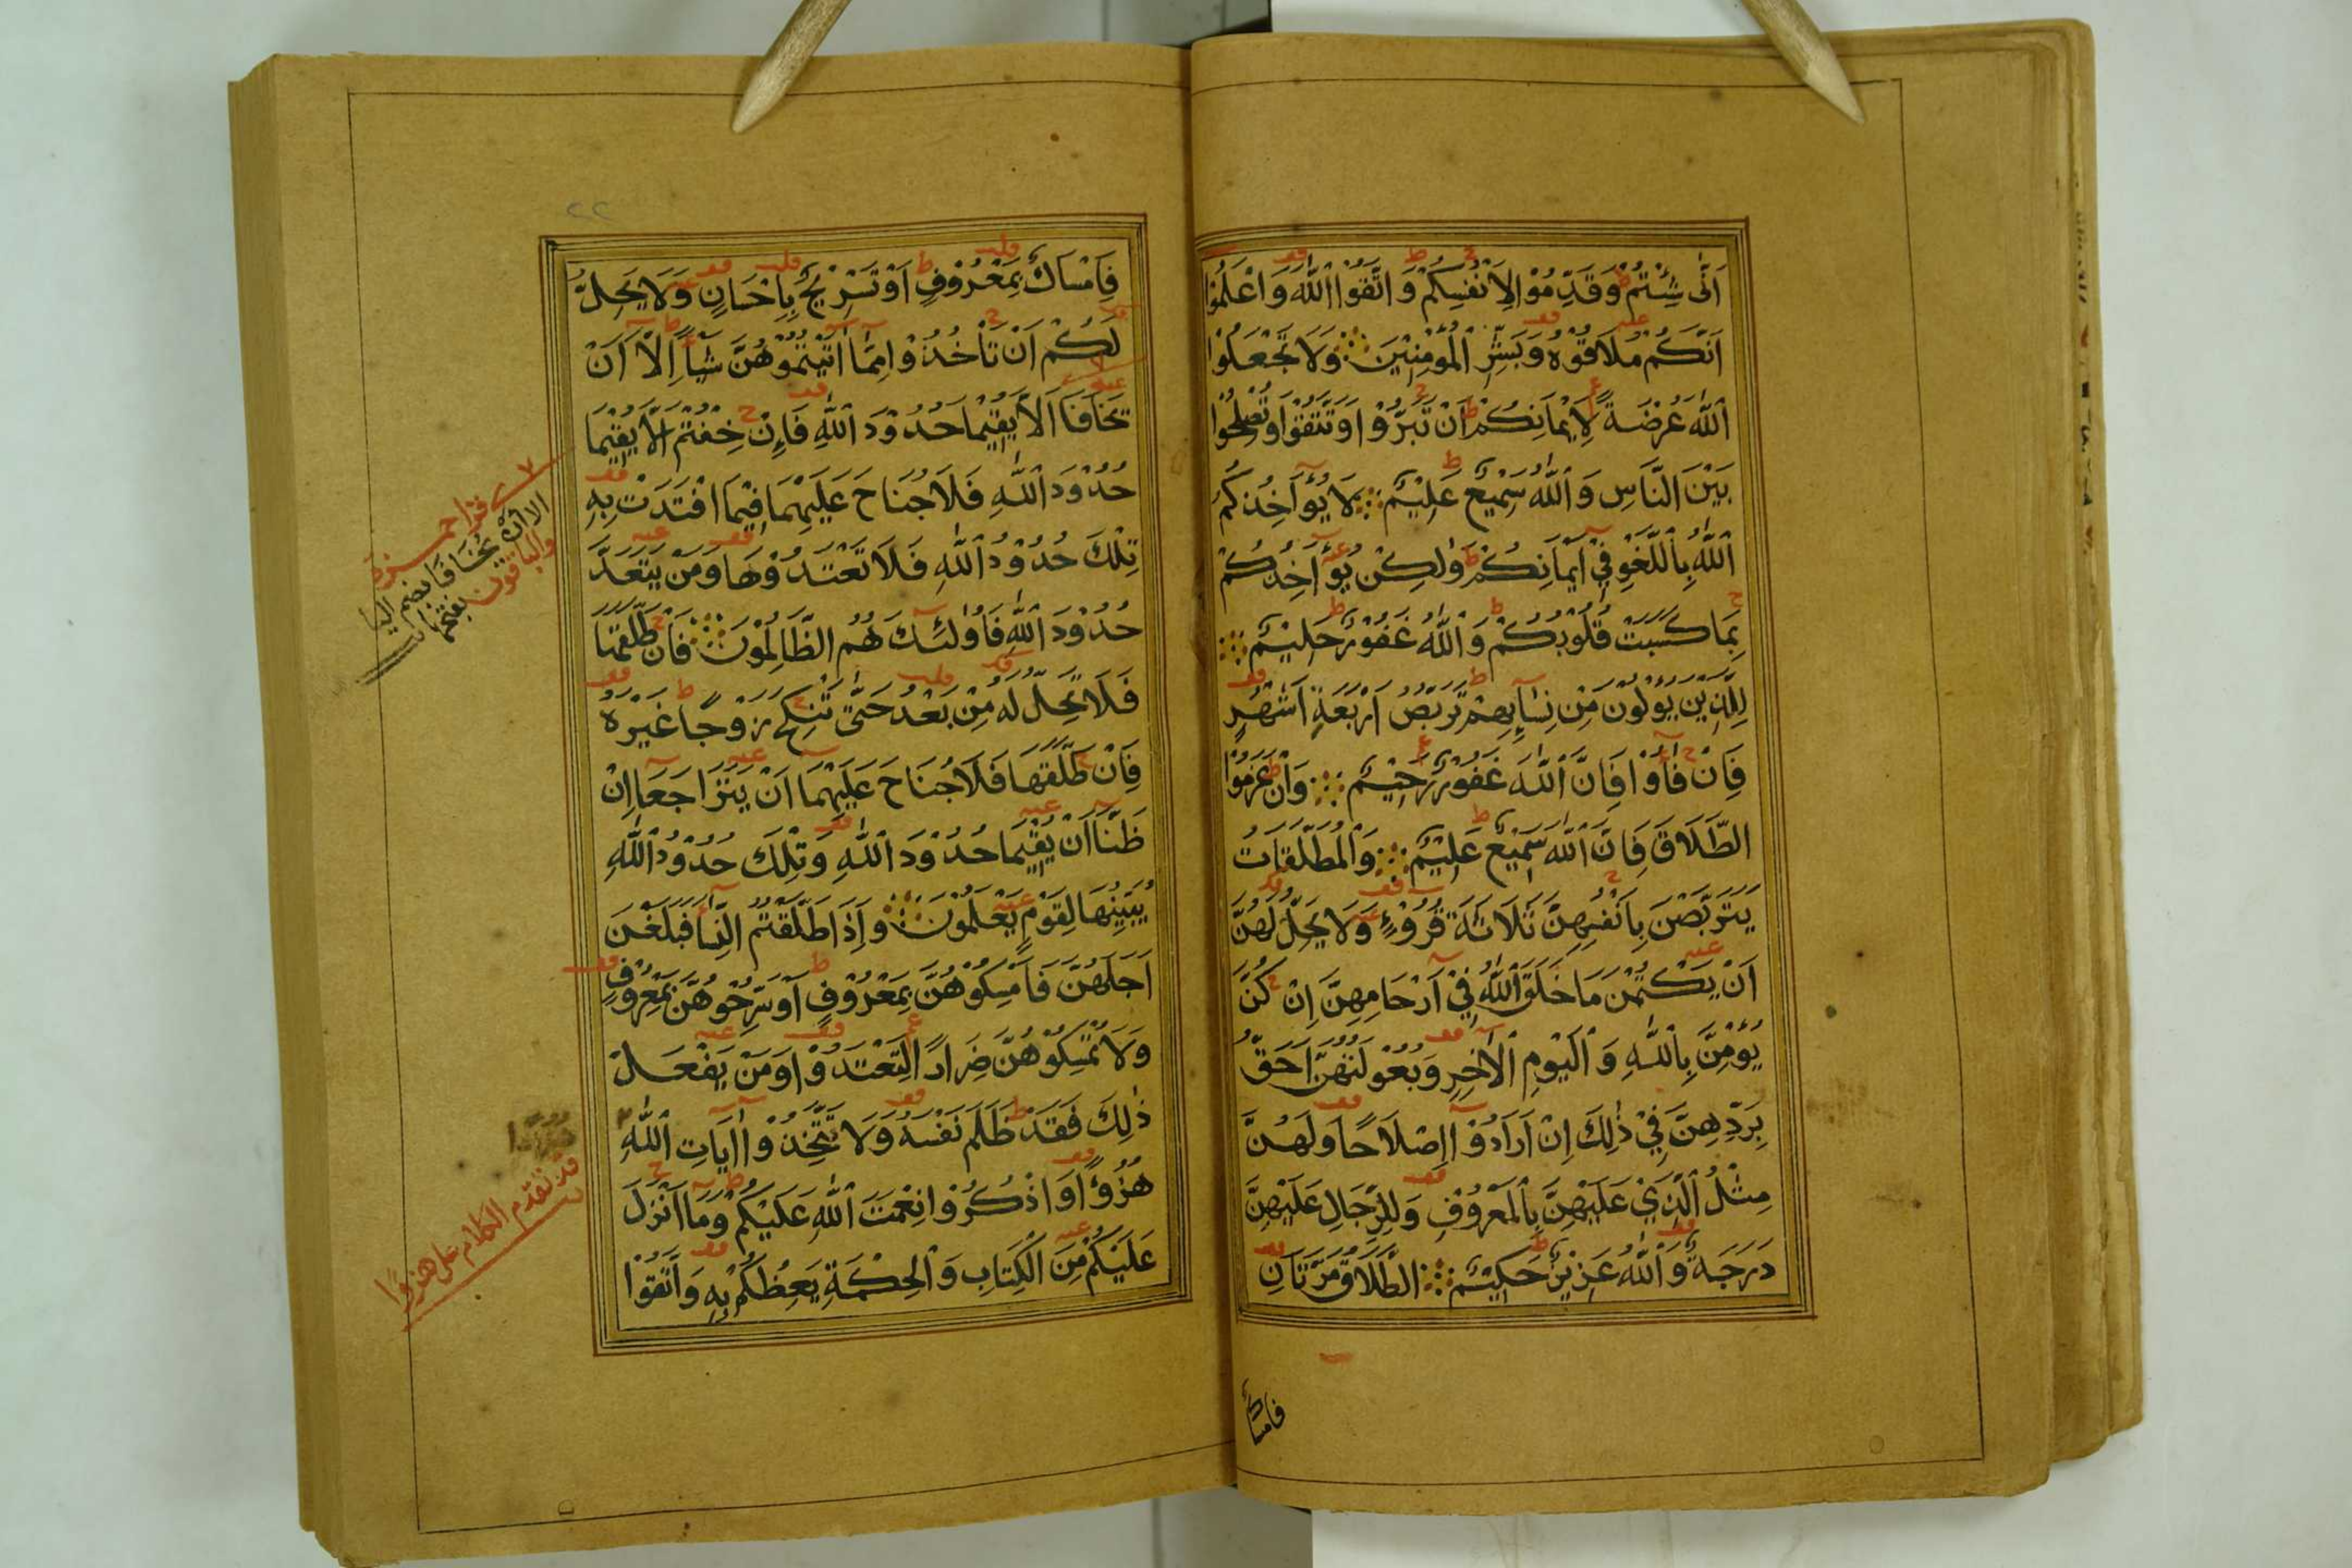 اَنّٰى شِئْتُمْ وَقَدِّمُوْا لِاَنْفُسِكُمْ وَاتَّقُوْا اللّٰهَ وَاعْلَمُوْا
اَنَّكُمْ مُلَاقُوْهُ وَبَشِّرِ الْمُؤْمِنِيْنَ وَلَا تَجْعَلُوْا
اللّٰهَ عُرْضَةً لِاَيْمَانِكُمْ اَنْ تَبَرُّوْا وَتَتَّقُوْا وَتُصْلِحُوْا
بَيْنَ النَّاسِ وَاللّٰهُ سَمِيْعٌ عَلِيْمٌ لَا يُؤَاخِذُكُمُ
اللّٰهُ بِاللَّغْوِ فِيْ اَيْمَانِكُمْ وَلٰكِنْ يُؤَاخِذُكُمْ
بِمَا كَسَبَتْ قُلُوْبُكُمْ وَاللّٰهُ غَفُوْرٌ حَلِيْمٌ
لِلَّذِيْنَ يُؤْلُوْنَ مِنْ نِسَآئِهِمْ تَرَبُّصُ اَرْبَعَةِ اَشْهُرٍ
فَاِنْ فَآؤُا فَاِنَّ اللّٰهَ غَفُوْرٌ رَحِيْمٌ وَاِنْ عَزَمُوْا
الطَّلَاقَ فَاِنَّ اللّٰهَ سَمِيْعٌ عَلِيْمٌ وَالْمُطَلَّقَاتُ
يَتَرَبَّصْنَ بِاَنْفُسِهِنَّ ثَلَاثَةَ قُرُوْءٍ وَلَا يَحِلُّ لَهُنَّ
اَنْ يَكْتُمْنَ مَا خَلَقَ اللّٰهُ فِيْ اَرْحَامِهِنَّ اِنْ كُنَّ
يُؤْمِنَّ بِاللّٰهِ وَالْيَوْمِ الْاٰخِرِ وَبُعُوْلَتُهُنَّ اَحَقُّ
بِرَدِّهِنَّ فِيْ ذٰلِكَ اِنْ اَرَادُوْا اِصْلَاحًا وَلَهُنَّ
مِثْلُ الَّذِيْ عَلَيْهِنَّ بِالْمَعْرُوْفِ وَلِلرِّجَالِ عَلَيْهِنَّ
دَرَجَةٌ وَاللّٰهُ عَزِيْزٌ حَكِيْمٌ الطَّلَاقُ مَرَّتَانِ
فامساك
٢٢
فَاِمْسَاكٌ بِمَعْرُوْفٍ اَوْ تَسْرِيْحٌ بِاِحْسَانٍ وَلَا يَحِلُّ
لَكُمْ اَنْ تَأْخُذُوْا مِمَّا اٰتَيْتُمُوْهُنَّ شَيْأً اِلَّا اَنْ
يَخَافَا اَلَّا يُقِيْمَا حُدُوْدَ اللّٰهِ فَاِنْ خِفْتُمْ اَلَّا يُقِيْمَا
حُدُوْدَ اللّٰهِ فَلَا جُنَاحَ عَلَيْهِمَا فِيْمَا افْتَدَتْ بِهِ
تِلْكَ حُدُوْدُ اللّٰهِ فَلَا تَعْتَدُوْهَا وَمَنْ يَتَعَدَّ
حُدُوْدَ اللّٰهِ فَاُولٰئِكَ هُمُ الظَّالِمُوْنَ فَاِنْ طَلَّقَهَا
فَلَا تَحِلُّ لَهُ مِنْ بَعْدُ حَتّٰى تَنْكِحَ زَوْجًا غَيْرَهُ
فَاِنْ طَلَّقَهَا فَلَا جُنَاحَ عَلَيْهِمَا اَنْ يَتَرَاجَعَا اِنْ
ظَنَّا اَنْ يُقِيْمَا حُدُوْدَ اللّٰهِ وَتِلْكَ حُدُوْدُ اللّٰهِ
يُبَيِّنُهَا لِقَوْمٍ يَعْلَمُوْنَ وَاِذَا طَلَّقْتُمُ النِّسَآءَ فَبَلَغْنَ
اَجَلَهُنَّ فَاَمْسِكُوْهُنَّ بِمَعْرُوْفٍ اَوْ سَرِّحُوْهُنَّ بِمَعْرُوْفٍ
وَلَا تُمْسِكُوْهُنَّ ضِرَارًا لِتَعْتَدُوْا وَمَنْ يَفْعَلْ
ذٰلِكَ فَقَدْ ظَلَمَ نَفْسَهُ وَلَا تَتَّخِذُوْا اٰيَاتِ اللّٰهِ
هُزُؤًا وَاذْكُرُوْا نِعْمَتَ اللّٰهِ عَلَيْكُمْ وَمَا اَنْزَلَ
عَلَيْكُمْ مِنَ الْكِتَابِ وَالْحِكْمَةِ يَعِظُكُمْ بِهِ وَاتَّقُوْا
قرا حمزة
الا ان يُخافا بضم اليا
والباقون بفتحها
قد تقدم الكلام على هزوا